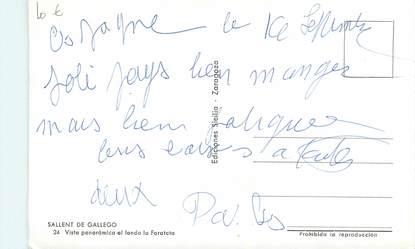 10 €
Espagne le Septembre
Joli pays bien manger
mais bien fatiguer
bons baisers a toutes
deux
Ediciones Sicilia - Zaragoza
SALLENT DE GALLEGO
24 Vista panorámica al fondo la Foratata
Prohibida la reproducción